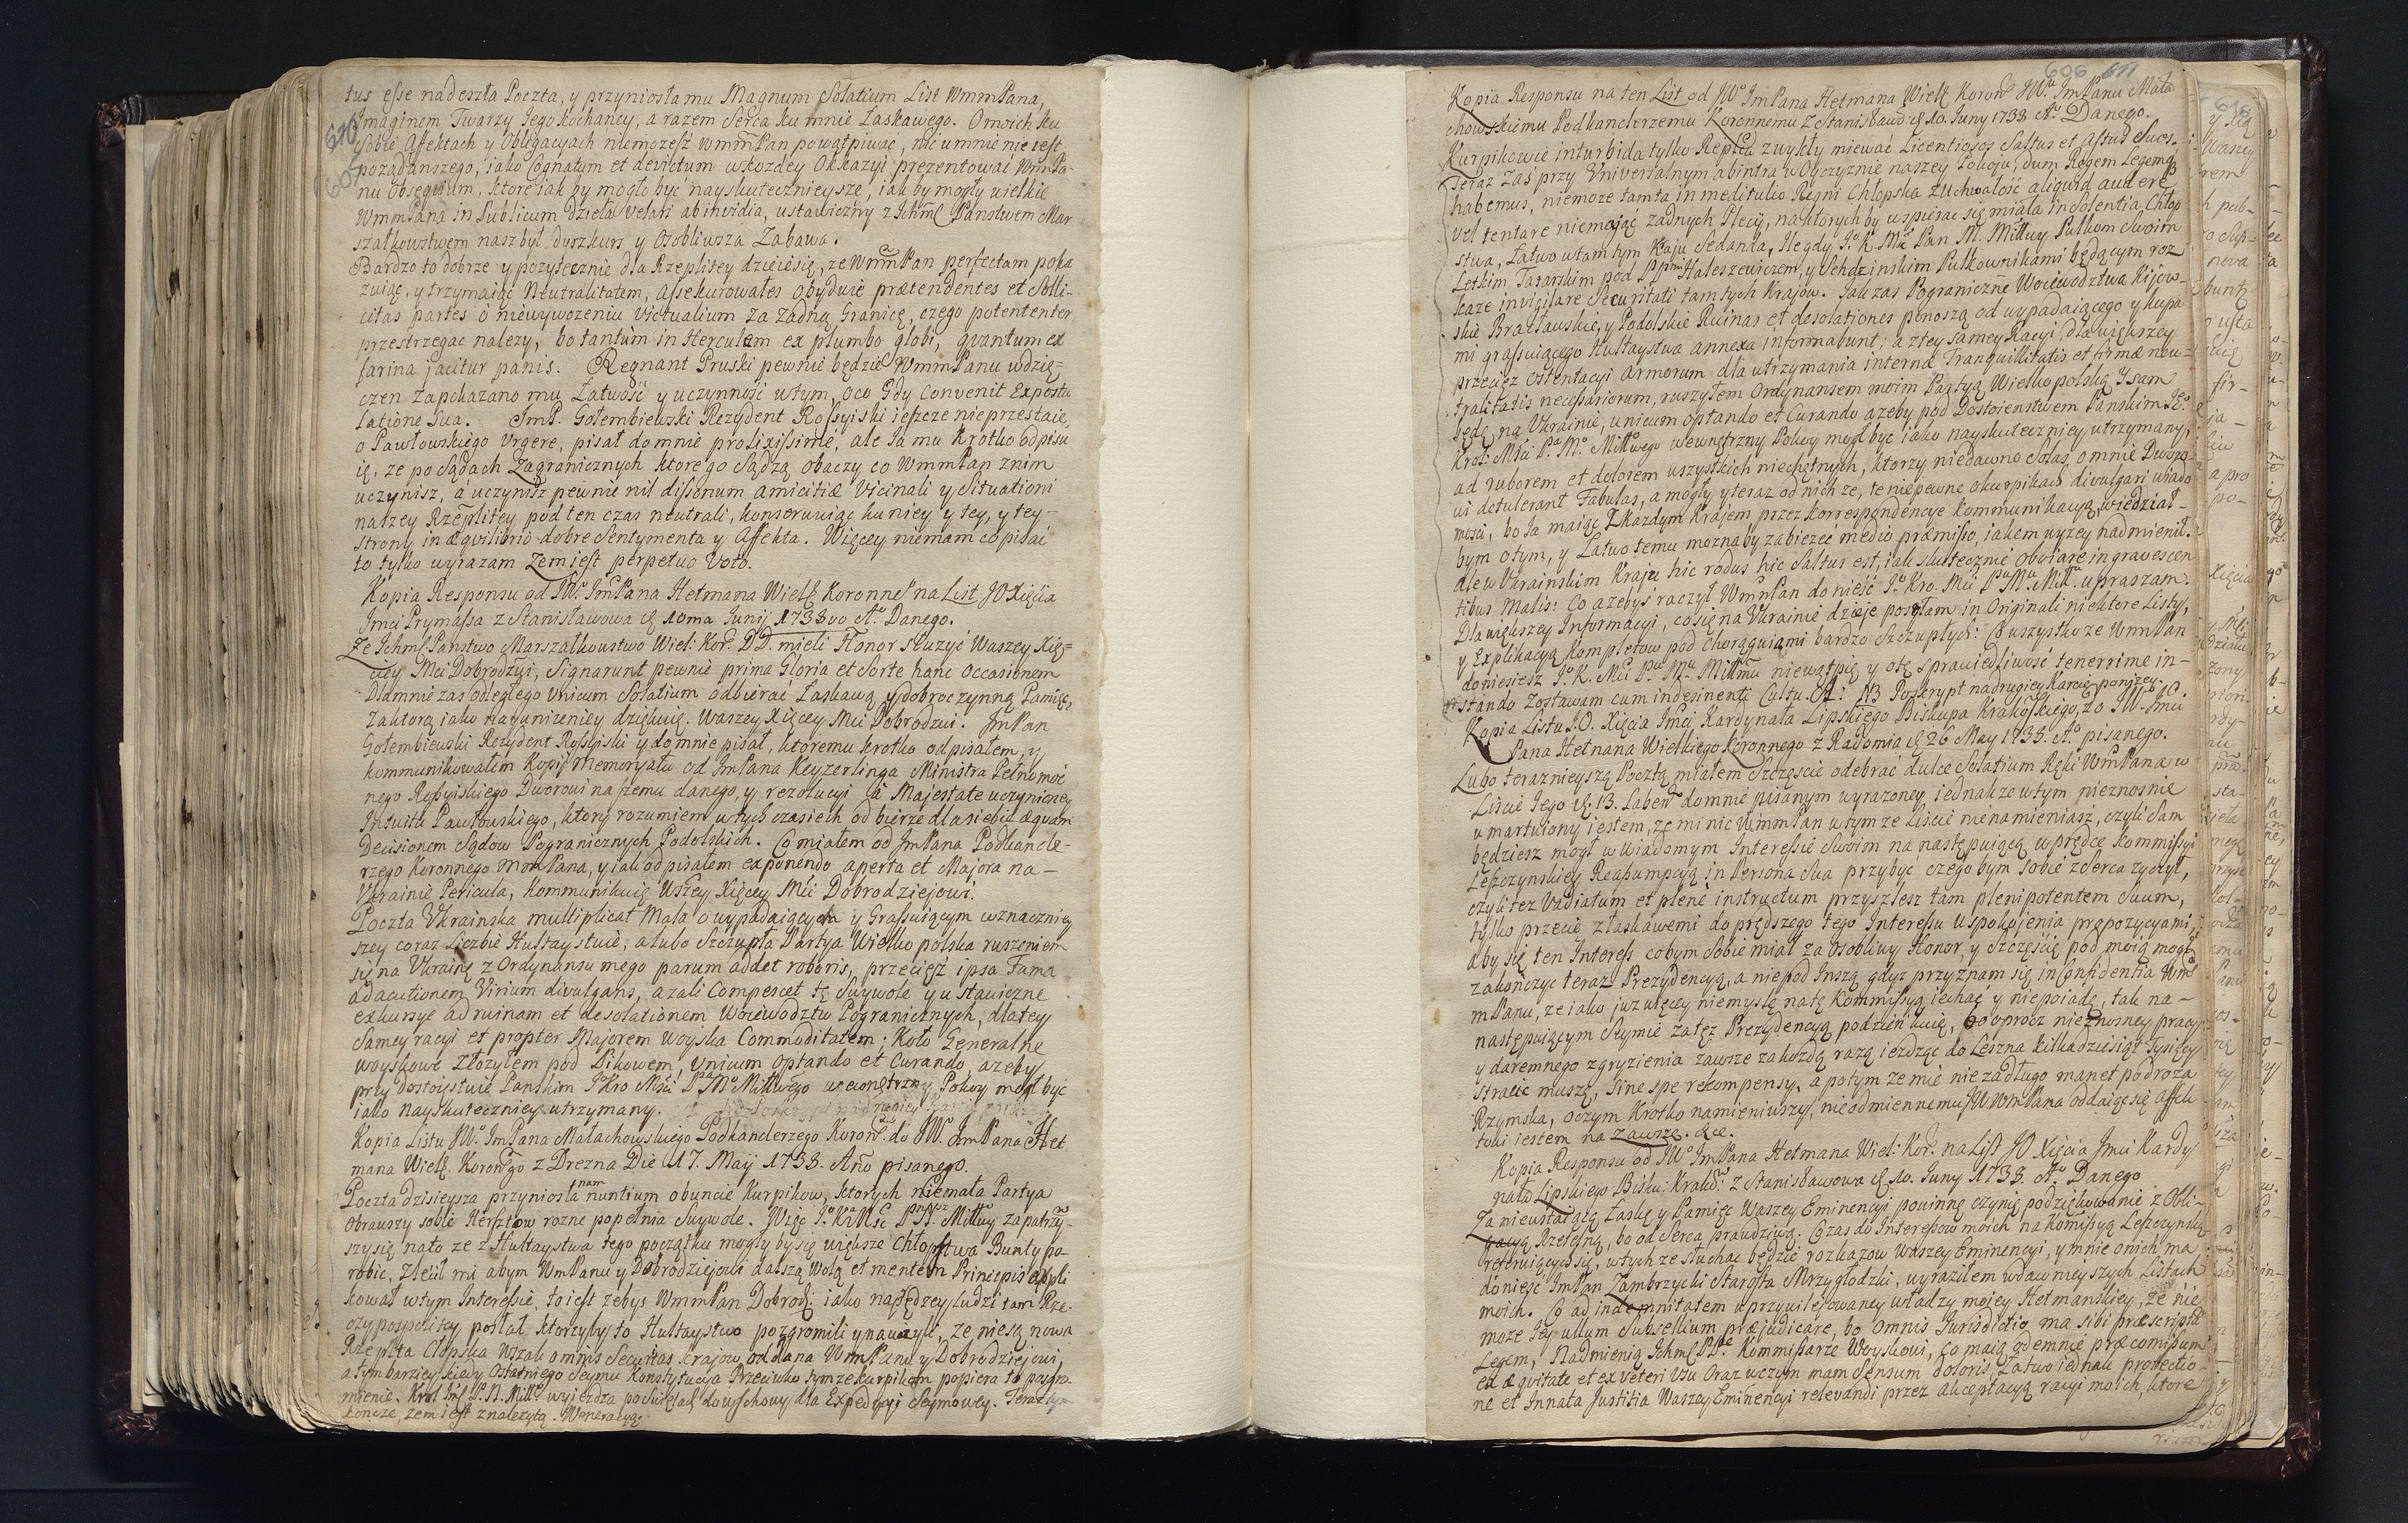 tus esse nadeszła Poczta, y przyniosła mu Magnum Solatium List WmmPana,
Imaginem Twarzy Jego kochaney, a razem Serca ku mnie Łaskawego. O moich ku
Sobie Affektach y Obligacyach niemożesz WmmPan powątpiwać, nic u mnie nie iest
pożądanszego, iako Cognatum et devictum w kożdey Okkazyi prezentować WmmPa-
nu Obsequium, ktore iak by mogło być nayskutecznieysze, iak by mogły wielkie
WmmPana in Publicum dzieła velari ab invidia, ustawiczny z Ichmć Panstwem Mar
szałkowstwem nasz był dyszkurs y Osobliwsza Zabawa.
Bardzo to dobrze y pozytecznie dla Rzeplitey dzieie się, ze WmmPan perfectam poka
zuiąc, y trzymaiąc Neutralitatem, assekurowałes obydwie prætendentes et Solli-
citas partes o niewywozeniu Victualium za Zadną Granicę, czego potententer
przestrzegac nalezy, bo tantùm in Herculem ex plumbo globi, quantum ex
farina jacitur panis. Regnant Pruski pewnie będzie WmmPanu wdzię-
czen za pokazano mu Łatwość y uczynność w tym, oco Gdy Convenit Expostu
latione Sua. ImP. Gołembiewski Rezydent Rossyiski ieszcze nieprzestaie,
o Pawłowskiego Urgere, pisał do mnie prolixissimè, ale Ja mu Krotko odpisu
ię, ze po Sądach Zagranicznych ktore go Sądzą obaczy co WmmPan z nim
uczynisz, á uczynisz pewnie nil dissonum amicitiæ Vicinali y Situationi
naszey Rzeplitey pod ten czas neutrali, konserwuiąc ku niey y tey, y tey-
strony in æquilibrio dobre Sentymenta y Affekta. Więcey niemam co pisać
to tylko wyrazam Zem iest perpetuo Voto.
Kopia Responsu od JW. ImPana Hetmana Wielk Koronne na List JO Xięcia
Imci Prymassa z Stanisławowa d 10ma Junij 1738vo A. Danego.
Ze Ichmć Panstwo Marszałkowstwo Wiel: Kor: DD. mieli Honor służyć Waszey Xię-
cey Mci Dobrodzyi, Signarunt pewnie prima Gloria et Sorte hanc Occasionem
Dla mnie zas odległego Unicum Solatium odbierać Łaskawą y dobroczynną Pamięc,
Za ktorą iako nayunizeniey dziękuię. Waszey Xięcey Mci Dobrodzwi. ImPan
Gołembiewski Rezydent Rossyiski y do mnie pisał, ktoremu krotko odpisałem, y
kommunikowałem Kopię Memoryału od ImPana Keyzerlinga Ministra Pełnomoc
nego Rossyiskiego Dworowi naszemu danego, y rezolucyi à Majestate uczynioney
Intuitu Pawłowskiego, ktory rozumiem w tych czasiech odbierze dla siebie æquam
Decisionem Sądow Pogranicznych Podolskich. Co miałem od ImPana Podkancle-
rzego Koronnego mmPana, y iak odpisałem exponendo aperta et Majora na-
Ukrainie Pericula, Kommunikuię WSzey Xięcey Mci Dobrodziejowi.
Poczta Ukrainska multiplicat Mala o wypadaiącym y Grassuiącym w znaczniey
szey coraz Liczbie Hultaystwie, a lubo Szczupła Partya Wielko polska ruszeniem
się na Ukrainę z Ordynansu mego parum addet roboris, przecięż ipsa Fama
ad acutionem Virium divulgans, azali Compescet tę Swywole y ustawiczne
exkursye ad ruinam et desolationem Woiewodztw Pogranicznych, dla tey
Samey racyi et propter Majorem Woyska Commoditatem; Koło Generalne
woyskowe złozyłem pod Dikowem, Unicum optando et Curando, azeby
przy dostoystwie Panskim J Kro Mści P M Miłłwego wewnętrzny Pokoy mogł być
iako nayskuteczniey utrzymany.
Kopia Listu JW. ImPana Małachowskiego Podkanclerzego Koron. do JW. ImPana Het
mana Wielk. Koronngo z Drezna Die 17. Maÿ 1738. Año pisanego.
Poczta dzisieysza przyniosła nam nuntium o buncie Kurpikow, ktorych niemała Partya
obrawszy sobie Hersztow rozne popełnia Swywole. Więc J. K Mść P N. Miłłwy zapatrzy-
szy się na to ze z Hultaystwa tego początku mogły by się większe Chłopstwa Bunty po-
robic, Zlecił mi abym WmPanu y Dobrodziejowi dalszą Wolą et mentem Principis expli
kował w tym Interessie, to iest zebys WmmPan Dobrodz: iako naprędzey ludzi tam Rze-
czy pospolitey posłał, ktorzyby to Hultaystwo pogromili y nauczyli, Ze niesą nowa
Rzeplta Chłopska wszak omnis Securitas krajow oddana WmPanu y Dobrodziejowi,
a tym barziey kiedy Ostatniego Seymu Konstytucya Przeciwko tymze kurpikom popiera to pogro-
mienie. Krol Imć P. N. Miłł wyiezdza po Swiątkach do Wschowy dla Expedycyi Seymowey. Teraz tyn
koncze, zem iest z nalezytą Weneracyą.
606
Kopia Responsu na ten List od JW ImPana Hetmana Wielk Koron JW ImPanu Mała
chowskiemu Podkanclerzemu Koronnemu z Stanisław d 10. Juny 1738 A. Danego.
Kurpikowie in turbida tylko Replca zwykły miewać Licentiosos Saltus et Astus Suos.
Teraz Zas przy Universalnym ab intra w Oyczyznie naszey Pokoju, dum Regem Legemq
habemus, niemoze tamta in meditulio Regni Chłopska Zuchwałość aliquid audere
vel tentare niemaiąć zadnych Plecy, na ktorych by wspierac się miała insolentia Chłop
stwa, Łatwo w tamtym Kraju Sedanda, Ile gdy J. K. Mć Pan M. Miłłwy Pułkom Swoim
Letkim Tatarskim pod Haleszewiczem, y Ochdzinskim Pułkownikami będącym roz
kaze invigilare Securitati tamtych Krajow. Jak zas Pograniczne Woiewodztwa Kijow-
skie Bracławskie, y Podolskie Ruinas et desolationes ponoszą od wypadaiącego y kupa-
mi grassuiącego Hultaystwa annexa informabunt; a z tey samey Racyi, dla większey
przecięż Ostentacyi Armorum dla utrzymania internæ Tranquillitatis et firmæ neu-
tralitatis necessariorum, ruszyłem Ordynansem moim Partyą Wielkopolską, y sam
będę na Ukrainie, unicum optando et Curando azeby pod Dostoienstwem Panskim Je
Krol: Mści P M Miłłwego wewnętrzny Pokoy mogł być iako nayskuteczniey utrzymany,
ad ruborem et dolorem wszystkich niechętnych, ktorzy niedawno Solas o mnie Dwozo-
wi detulerant Fabulas, a mogły y teraz od nich ze, te niepewne o kurpikach divulgari wiado
mosci, bo Ja maiąc z Kazdym Krajem przez korrespondencye kommunikacyą, wiedział-
bym o tym, y Łatwo temu moznaby zabiezeć medio præmisso, iakem wyzey nadmienił.
Ale w Ukrainskim Kraju hic rodus hic Saltus est, iak skutecznie Obviare ingravescen
tibus Malis: Co azebyś raczył WmmPan donieść J. Kro. Mći P M. Miłł. upraszam.
Dla większey Informacyi, co się na Ukrainie dzieje posyłam in Originali niektore Listy,
y Explikacyą Kompletow pod Chorągwiami bardzo Szczupłych: Co wszystko ze WmmPan
doniesiesz J. K. Mći P M Miłłmu niewątpię y o tę sprawiedliwosć tenerrime in-
stando Zostawam cum indesinenti Cultu. NB Postcrypt na drugiey Karcie ponizey.
Kopia Listu J.O. Xięcia Imći Kardynała Lipskiego Biskupa Krakowskiego, do JW. Imći
Pana Hetmana Wielkiego Koronnego z Radomia d 26 May 1738. A. pisanego.
Lubo teraznieyszą Pocztą miałem Szczęscie odebrać dulce Solatium Ręki WmPana w
Liscie Jego d. 13. Laben do mnie pisanym wyrazoney iednakze w tym nieznosnie
umartwiony iestem, ze mi nic WmmPan w tym ze Liscie nie namieniasz, czyli Sam
będziesz mogł w wiadomym Interessie Swoim na następuiącą w prędce Kommissyi
Leszczynskiey Reassumpcyą in Persona Sua przybyć czego bym sobie z Serca zyczył,
czyli tez Vadiatum et plenè instructum przyszlesz tam plenipotentem Suum,
tylko przecie z łaskawemi do prędszego tego Interessu uspokojenia propozycyami,
aby się ten Interess co bym Sobie miał za Osobliwy Honor, y Szczęście pod moią mogł
zakończyc teraz Prezydencyą, a nie pod Inszą, gdyz przyznam się in Confidentia Wm
mPanu, ze iako juz więcey niemyslę na tę Kommissyą iechać y niepoiadę, tak na-
następuiącym Seymie za tęz Prezydencyą podziękuię, bo oprocz nieznosney pracy
y daremnego zgryzienia zawsze za kozdą razą iezdząc do Leszna kilkadziesiąt Tysięcy
stracic muszę, Sine spe rekompensy, a potym ze mie niezadługo manet podroza
Rzymska, o czym krotko namieniwszy, nieodmiennemu JW WmPana oddaięc się affek
towi iestem na zawsze. &c.
Kopia Responsu od JW ImPana Hetmana Wiel: Kor. na List JO Xięcia Imći Kardy
nała Lipskiego Bisku: Krako. z Stanisławowa d 10. Juny 1738. A. Danego
Za nieustaiącą Łaskę y Pamięć Waszey Eminencyi powinne czynię podziękowanie z Obli-
gacyą Rzetelną, bo od Serca prawdziwą. Czas do Interessow moich na Komissyą Leszczynską
referuiących się, w tych ze słuchac będzie rozkazow Waszey Eminencyi, y mnie o nich ma
donieśc ImPan Zambrzycki Starosta Mrzygłodzki, wyraziłem w dawnieyszych Listach
moich. Co ad indemnitatem uprzywilejowaney władzy mojey Hetmanskiey, ze nie
moze Jey ullum Subsellium præjudicare, bo Omnis Jurisdictio ma sibi præscriptā
Legem, Nadmienią Ichmć PP Kommissarze Woyskowi, co maią odemnie præcomissum
ex æquitate et ex Veteri Usu Oraz w czym mam Sensum doloris, Łatwo iednak protectio-
ne et Innata Justitia Waszey Eminencyi relevandi przez akceptacyą racyi moich, ktore